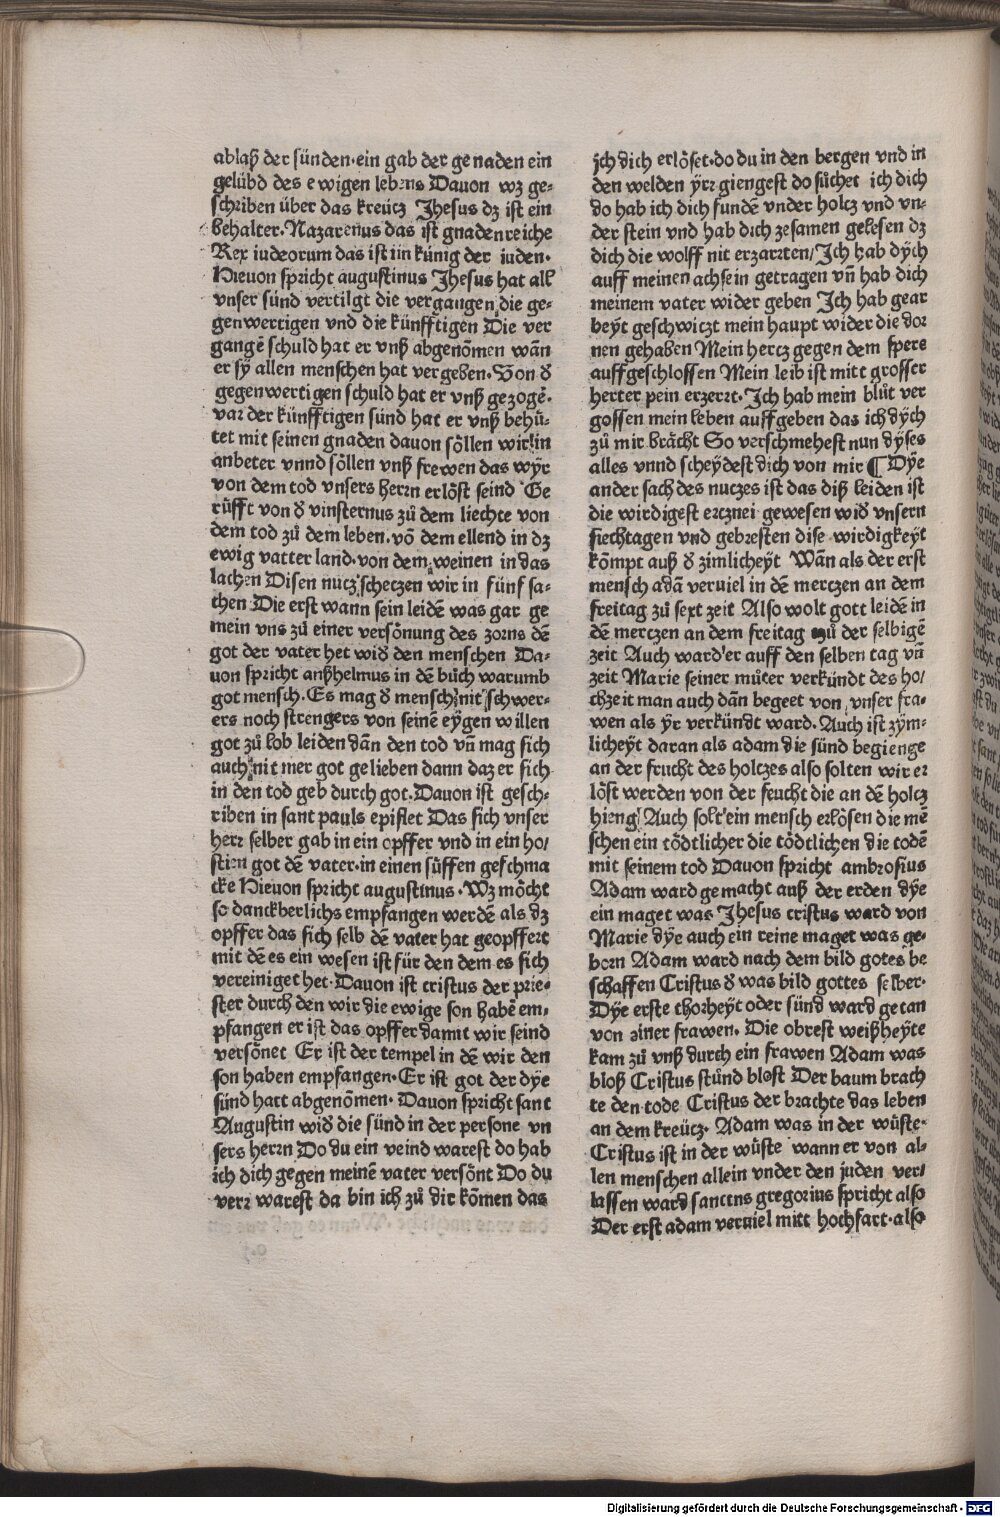 ablaß der sünden·ein gab der genaden ein
gelübd des ewigen lebens Dauon wz ge⸗
schriben über das kreücz Jhesus dz ist ein
behalter·Nazarenus das ist gnadenreiche
Rex iudeorum das ist ein künig der juden·
Hieuon spricht augustinus Jhesus hat all
vnser sünd vertilgt die vergangen die ge⸗
genwertigen vnd die künfftigen Die ver
gangē schuld hat er vnß abgenōmen wān
er sÿ allen menschen hat vergeben·Von d̕
gegenwertigen schuld hat er vnß gezogē·
var der künfftigen sünd hat er vnß behü⸗
tet mit seinen gnaden dauon söllen wir in
anbeter vnnd söllen vnß frewen das wÿr
von dem tod vnsers herrn erlöst seind Ge
rüfft von d̕ vinsternus zů dem liechte von
dem tod zů dem leben·vō dem ellend in dz
ewig vatter land·von dem weinen in das
lachen Disen nucz scheczen wir in fünf sa⸗
chen Die erst wann sein leidē was gar ge
mein vns zů einer versönung des zorns dē
got der vater het wid̕ den menschen Da⸗
uon spricht anßhelmus in dē bůch warumb
got mensch·Es mag d̕ mensch nit schwer⸗
ers noch strengers von seinē eÿgen willen
got zů lob leiden dān den tod vn̄ mag sich
auch nit mer got gelieben dann daz er sich
in den tod geb durch got·Dauon ist gesch⸗
riben in sant pauls epistel Das sich vnser
herr selber gab in ein opffer vnd in ein ho/
stien got dē vater·in einen süssen geschma
cke Hieuon spricht augustinus·Wz möcht
so danckberlichs empfangen werdē als dz
opffer das sich selb dē vater hat geopffert
mit dē es ein wesen ist für den dem es sich
vereiniget het·Dauon ist cristus der prie⸗
ster durch den wir die ewige son habē em⸗
pfangen er ist das opffer damit wir seind
versönet Er ist der tempel in dē wir den
son haben empfangen·Er ist got der dÿe
sünd hatt abgenōmen· Dauon spricht sant
Augustin wid̕ die sünd in der persone vn
sers herrn Do du ein veind warest do hab
ich dich gegen meinē vater versönt Do du
verr warest da bin ich zů dir kōmen das
jch dich erlöset·do du in den bergen vnd in
den welden ÿrr giengest do sůchet ich dich
do hab ich dich fundē vnder holcz vnd vn⸗
der stein vnd hab dich zesamen gelesen dz
dich die wolff nit erzarzten/Jch hab dÿch
auff meinen achseln getragen vn̄ hab dich
meinem vater wider geben Jch hab gear
beÿt geschwiczt mein haupt wider die dor
nen gehaben Mein hercz gegen dem spere
auffgeschlossen Mein leib ist mitt grosser
herter pein erzerzt·Jch hab mein blůt ver
gossen mein leben auffgeben das ich dÿch
zů mir brācht So verschmehest nun dÿses
alles vnnd scheÿdest dich von mir ¶ Dÿe
ander sach des nuczes ist das diß leiden ist
die wirdigest ercznei gewesen wid̕ vnsern
siechtagen vnd gebresten dise wirdigkeÿt
kōmpt auß d̕ zimlicheÿt Wān als der erst
mensch adā veruiel in dē merczen an dem
freitag zů sext zeit Also wolt gott leidē in
dē merczen an dem freitag zů der selbigē
zeit Auch ward er auff den selben tag vn̄
zeit Marie seiner můter verkündt des ho/
chzeit man auch dān begeet von vnser fra⸗
wen als ÿr verkündt ward·Auch ist zÿm⸗
licheÿt daran als adam die sünd begienge
an der frucht des holczes also solten wir er
löst werden von der frucht die an dē holcz
hieng Auch solt ein mensch erlösen die mē
schen ein tödtlicher die tödtlichen die todē
mit seinem tod Dauon spricht ambrosius
Adam ward gemacht auß der erden dÿe
ein maget was Jhesus cristus ward von
Marie dÿe auch ein reine maget was ge⸗
born Adam ward nach dem bild gotes be
schaffen Cristus d̕ was bild gottes selber·
Dÿe erste thorheÿt oder sünd ward getan
von einer frawen· Die obrest weißheÿte
kam zů vnß durch ein frawen Adam was
bloß Cristus stůnd bloß Der baum brach
te den tode Cristus der brachte das leben
an dem kreücz· Adam was in der wüste·
Cristus ist in der wüste wann er von al⸗
len menschen allein vnder den juden ver/
lassen ward sanctns gregorius spricht also
Der erst adam veruiel mitt hochfart·also
Digitalisierung gefördert durch die Deutsche Forschungsgemeinschaft - DFG